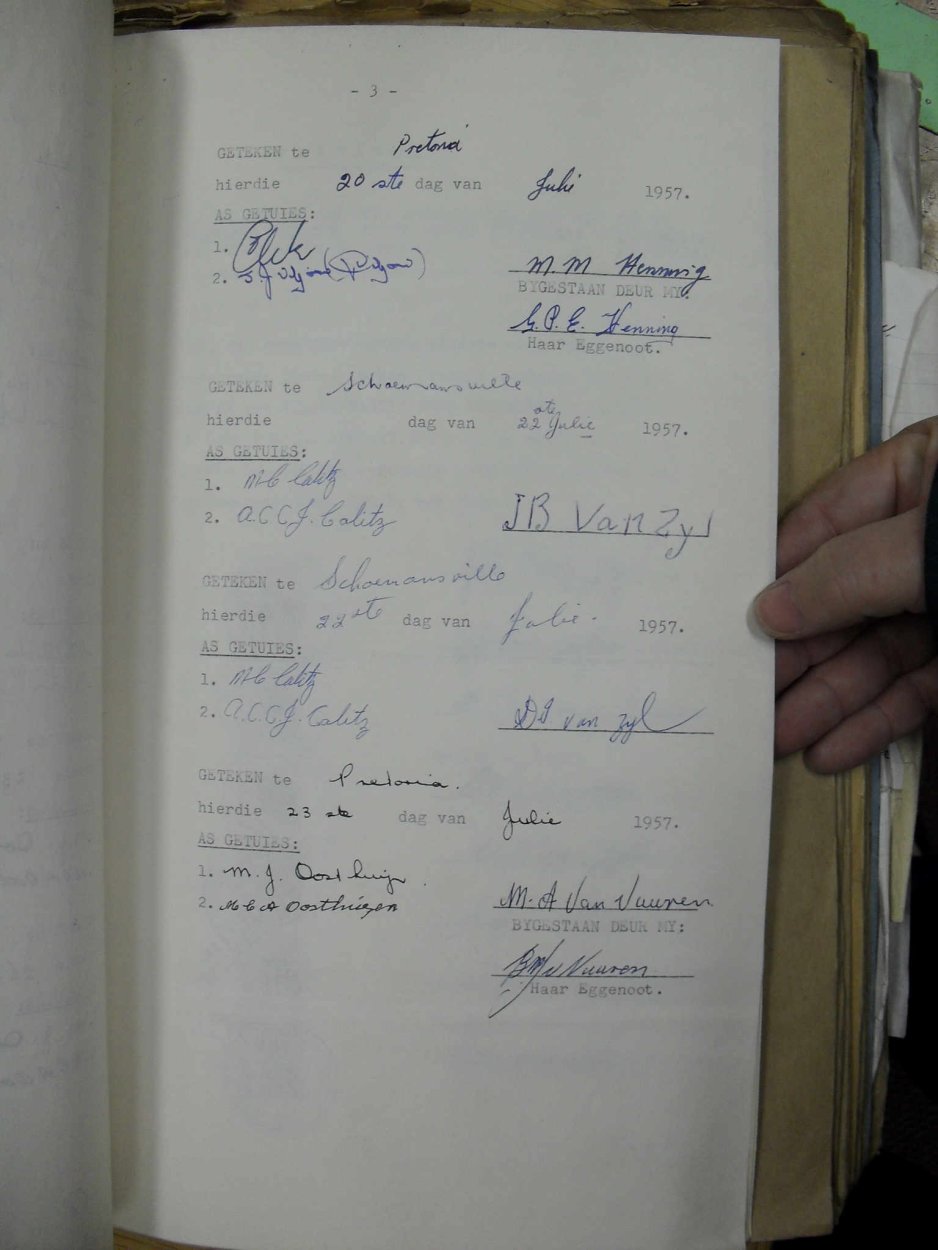 - 3 -
GETEKEN te Pretoria
hierdie 20 ste dag van Julie 1957.
AS GETUIES:
1.
2.
M.M Henning
BYGESTAAN DEUR MY:
G.P.E. Henning
Haar Eggenoot.
GETEKEN te Schoemansville
hierdie dag van 22ste Julie 1957.
AS GETUIES:
1. M C Calitz
2. A.C.C.J. Calitz
JB Van Zyl
GETEKEN te Schoemansville
hierdie 22ste dag van Julie. 1957.
AS GETUIES:
1. M C Calitz
2. A.C.C.J. Calitz
van Zyl
GETEKEN te Pretoria.
hierdie 23 ste dag van Julie 1957.
AS GETUIES:
1. M. J. Oosthuizen
2. Oosthuizen
M. A Van Vuuren
BYGESTAAN DEUR MY:
v Vuuren
Haar Eggenoot.